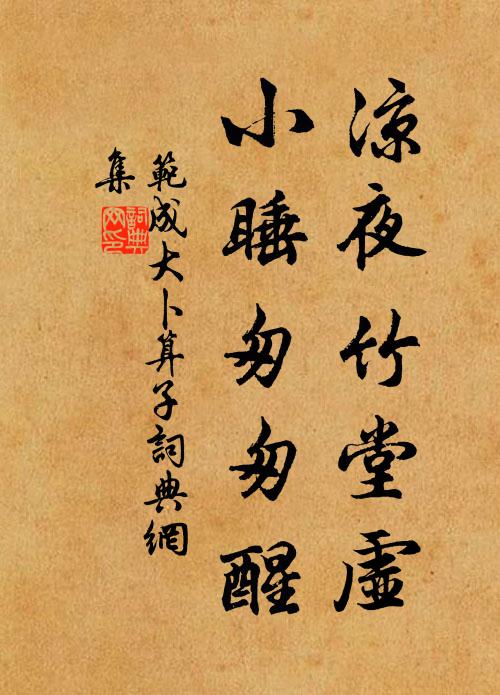 凉夜竹堂虛
小睡匆匆醒
範成大卜算子詞典網
集
詞典
網印